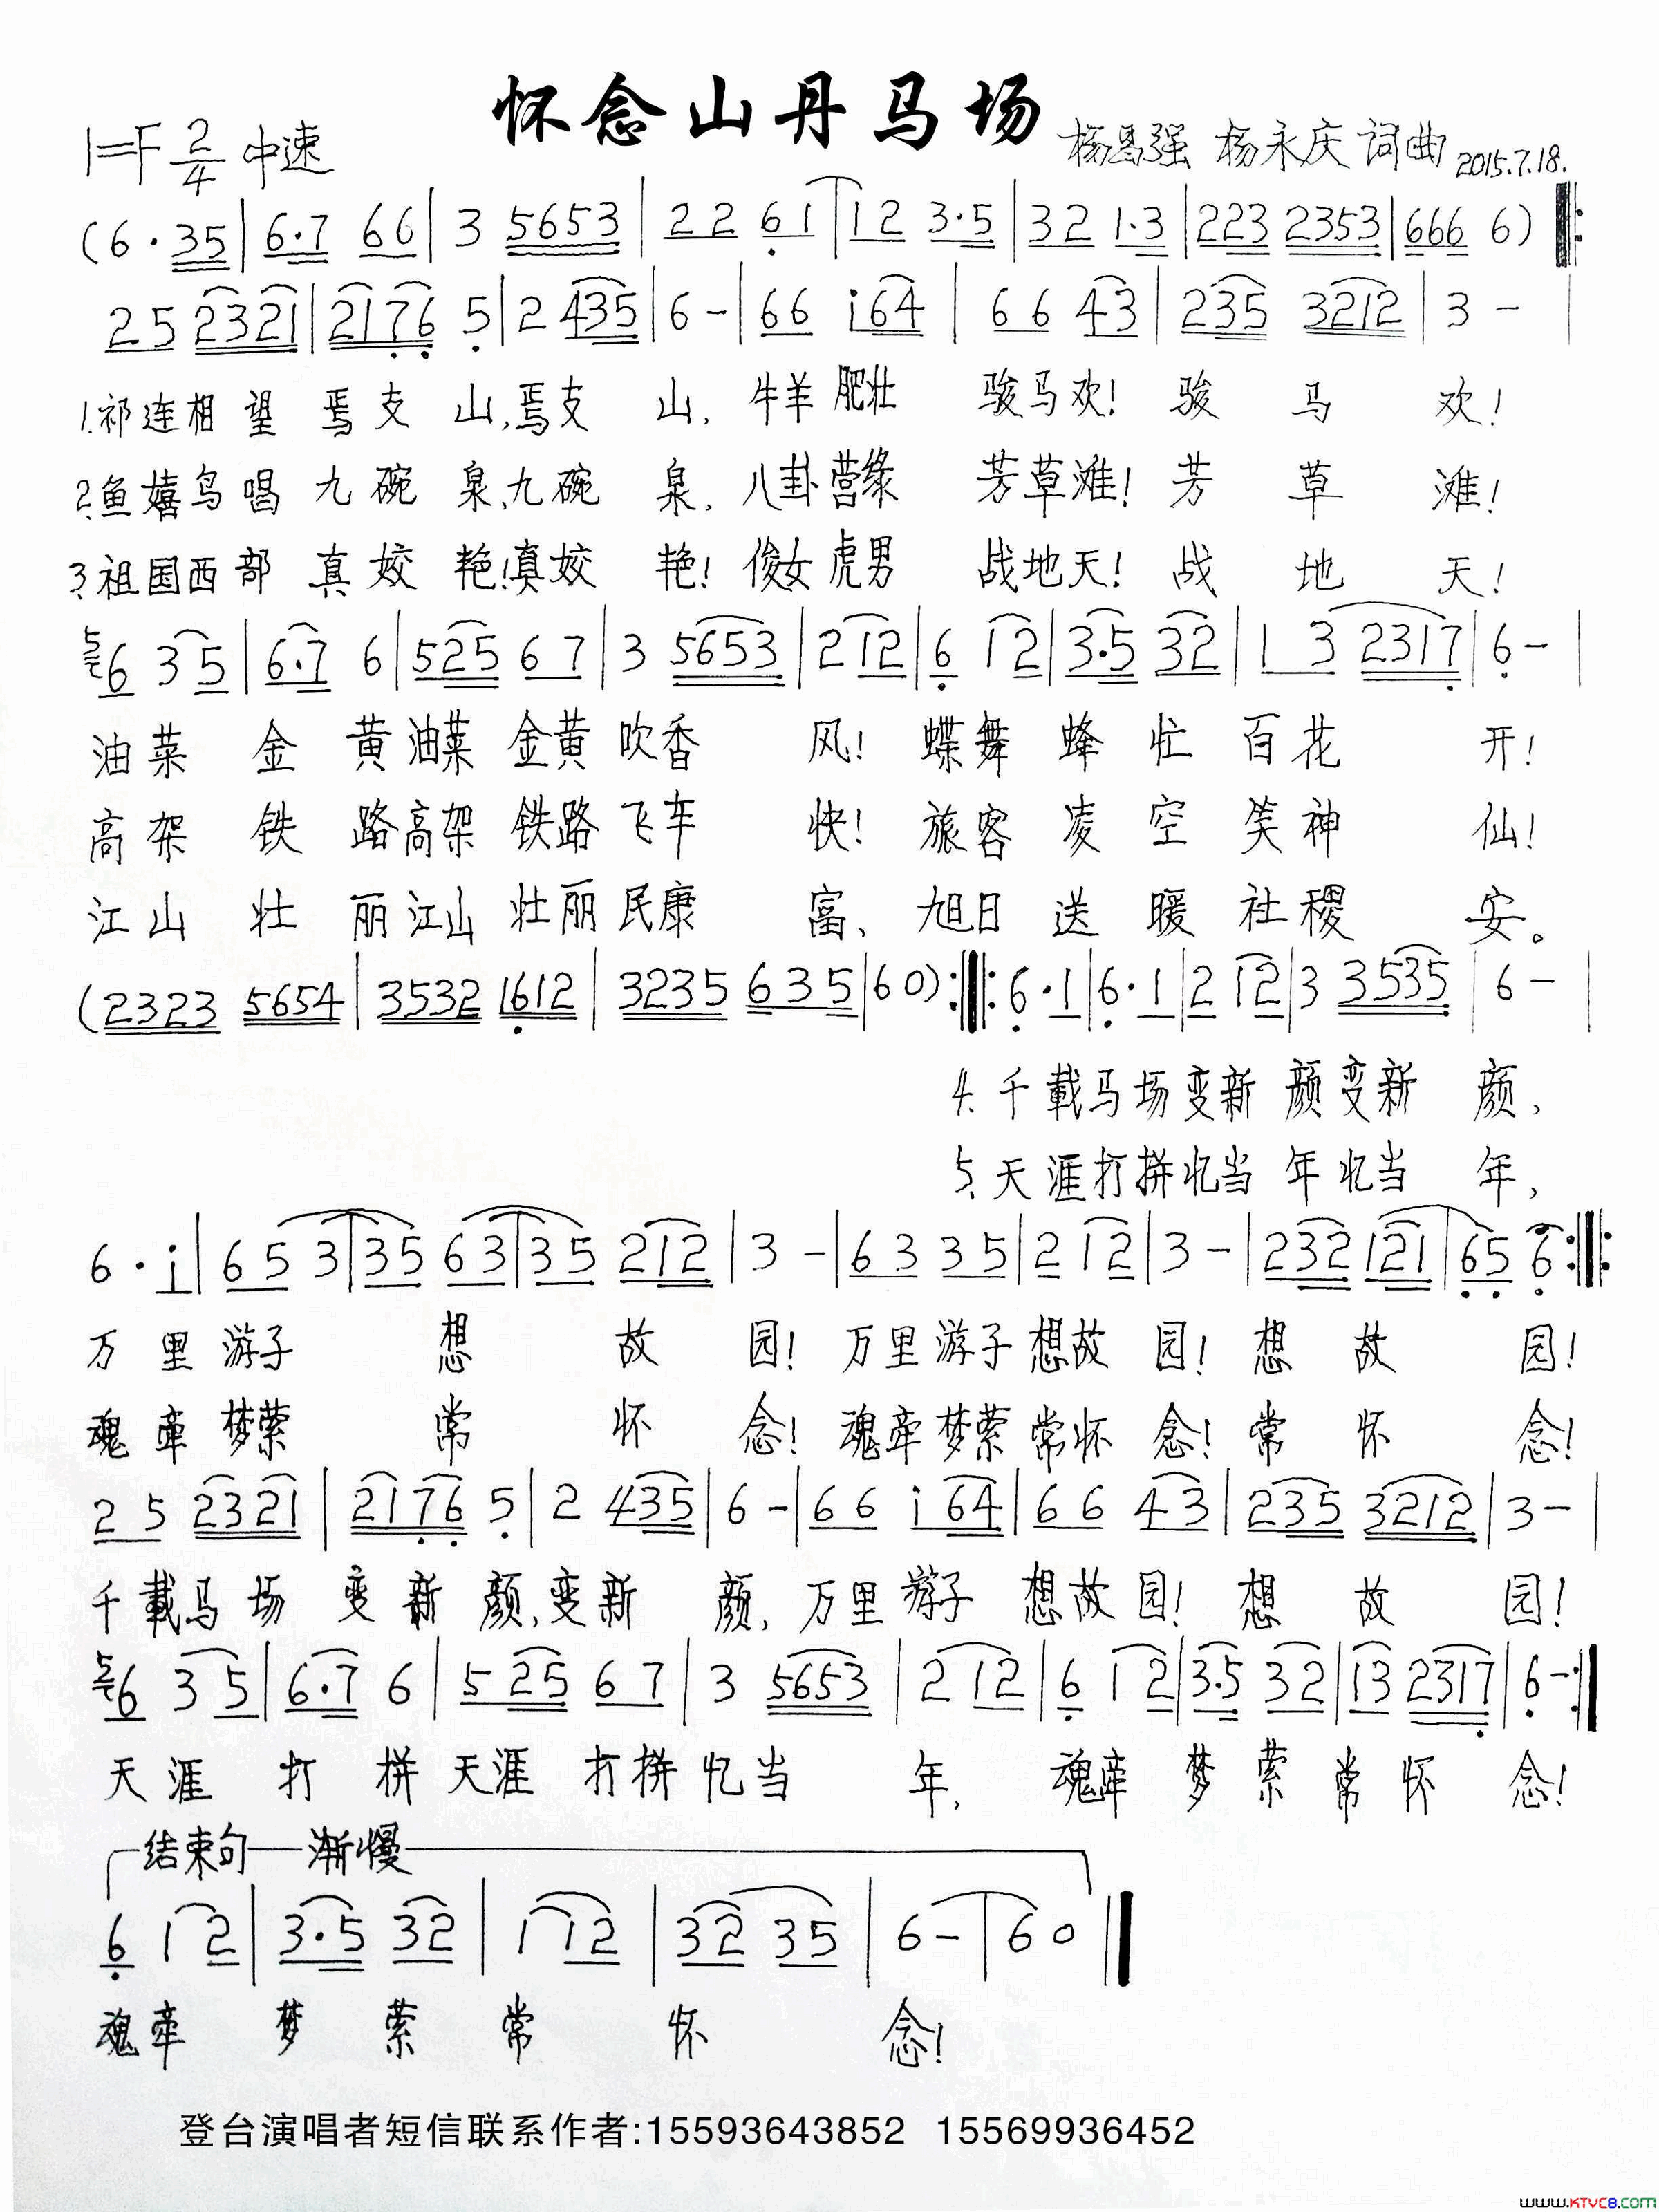 怀念山丹马场
1=F 2/4 中速
杨昌强 杨永庆 词曲 2015.7.18.
(6·35|6·7 66|3 5653|22 61|12 3·5|32 1·3|223 2353|666 6)‖:
25 2321|2176 5|2 435|6-|66 i64|66 43|235 3212|3-|
1.祁连相望 焉支山,焉支 山, 牛羊肥壮 骏马欢! 骏马欢!
2.鱼嬉鸟唱 九碗泉,九碗 泉, 八卦营缘 芳草滩! 芳草滩!
3.祖国西部 真姣艳!真姣 艳! 俊女虎男 战地天! 战地天!
5 6 35|6·7 6|525 67|3 5653|212|6 12|3·5 32|1 3 2317|6-|
油菜金黄油菜金黄吹香风! 蝶舞蜂忙百花开!
高架铁路高架铁路飞车快! 旅客凌空笑神仙!
江山壮丽江山壮丽民康富、旭日送暖社稷安。
(2323 5654|3532 1612|3235 635|60):‖:6·1|6·1|2 12|3 3535|6-|
4.千载马场变新颜变新颜,
5.天涯打拼忆当年忆当年,
6·i|65 3|35 63|35 212|3-|63 35|2 12|3-|232 121|65 6:‖:
万里游子想故园! 万里游子想故园! 想故园!
魂牵梦萦常怀念! 魂牵梦萦常怀念! 常怀念!
25 2321|2176 5|2 435|6-|66 i64|66 43|235 3212|3-|
千载马场变新颜,变新颜, 万里游子想故园! 想故园!
5 6 35|6·7 6|525 67|3 5653|2 12|6 12|3·5 32|13 2317|6-:‖
天涯打拼天涯打拼忆当年, 魂牵梦萦常怀念!
结束句—渐慢
6 12|3·5 32|1 12|32 35|6-|60‖
魂牵梦萦常怀念!
登台演唱者短信联系作者:15593643852 15569936452
www.KTVC8.com